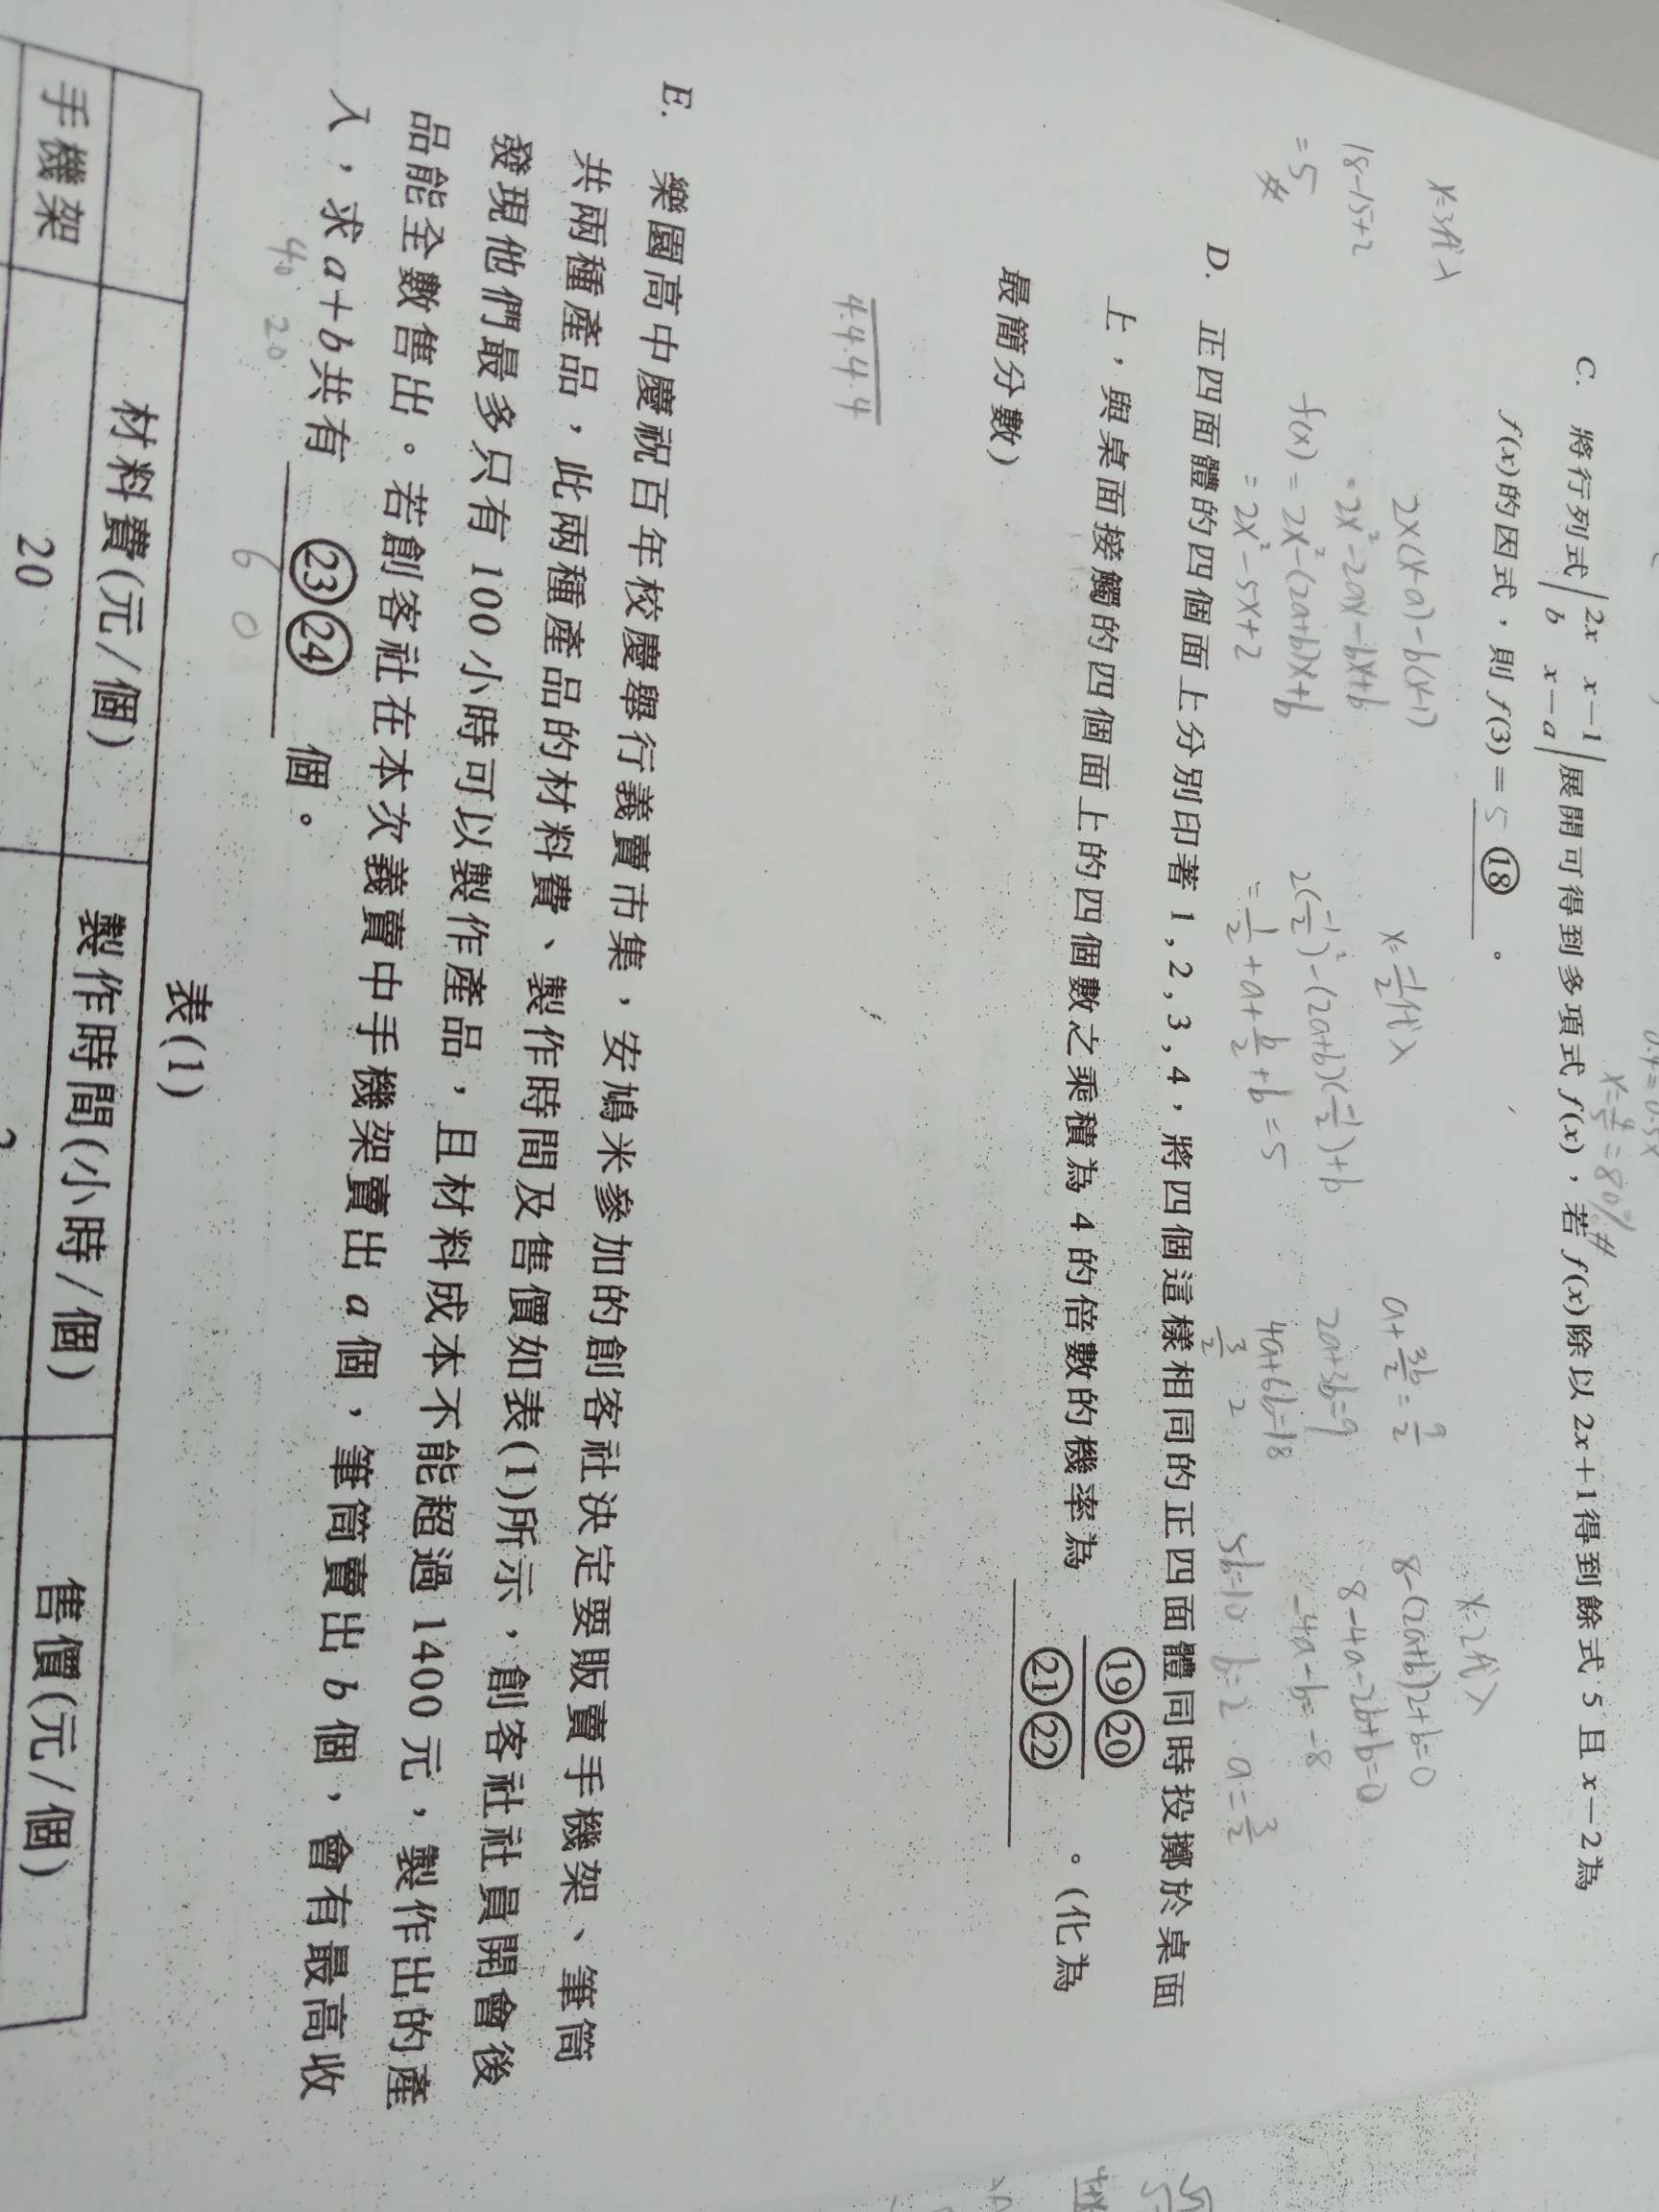 C. 將行列式 |2x x-1| 展開可得到多項式 f(x),若 f(x)除以 2x+1得到餘式 5 且 x-2為
|b x-a|
f(x)的因式,則 f(3)= 5 ⑱ 。
x=3代入
18-15+2
=5 #
2x(x-a)-b(x-1)
=2x²-2ax-bx+b
f(x)=2x²-(2a+b)x+b
=2x²-5x+2
x=-1/2代入
2(-1/2)²-(2a+b)(-1/2)+b
=1/2+a+b/2+b=5
a+3b/2=9/2
2a+3b=9
4a+6b=18
3/2 2
x=2代入
8-(2a+b)2+b=0
8-4a-2b+b=0
-4a-b=-8
5b=10 b=2 a=3/2
x=4/5=80% #
D. 正四面體的四個面上分別印著 1,2,3,4,將四個這樣相同的正四面體同時投擲於桌面
上,與桌面接觸的四個面上的四個數之乘積為 4 的倍數的機率為 ⑲⑳/㉑㉒ 。(化為
最簡分數)
4.4.4.4
E. 樂園高中慶祝百年校慶舉行義賣市集,安鳩米參加的創客社決定要販賣手機架、筆筒
共兩種產品,此兩種產品的材料費、製作時間及售價如表(1)所示,創客社社員開會後
發現他們最多只有 100 小時可以製作產品,且材料成本不能超過 1400 元,製作出的產
品能全數售出。若創客社在本次義賣中手機架賣出 a 個,筆筒賣出 b 個,會有最高收
入,求 a+b共有 ㉓㉔ 個。
40 20
6 0
表(1)
材料費(元/個) 製作時間(小時/個) 售價(元/個)
手機架 20